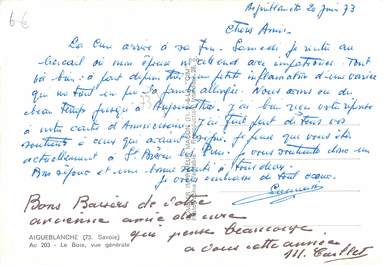 6€
le 20 Juin 73
Chers Amis
La Cure arrive à sa fin. Samedi je rentre au
bercail où mon époux m'attend avec impatience. Tout
va bien : à part depuis hier une petite inflammation d'une varice
qui me fait un peu la jambe allergie. Nous avons eu du
beau temps jusqu'à Aujourd'hui. J'ai bien reçu votre réponse
à notre carte d'Anniversaire. J'ai fait part de vos
à ceux qui avaient signé. Je pense que vous êtes
actuellement à St je vous souhaite donc un
Bon séjour et une bonne santé à tous deux.
Je vous embrasse de tout cœur.
Bons Baisers de votre
ancienne amie de cure
qui pense beaucoup
a vous cette année
AIGUEBLANCHE (73. Savoie)
Ac 203 - Le Bois, vue générale